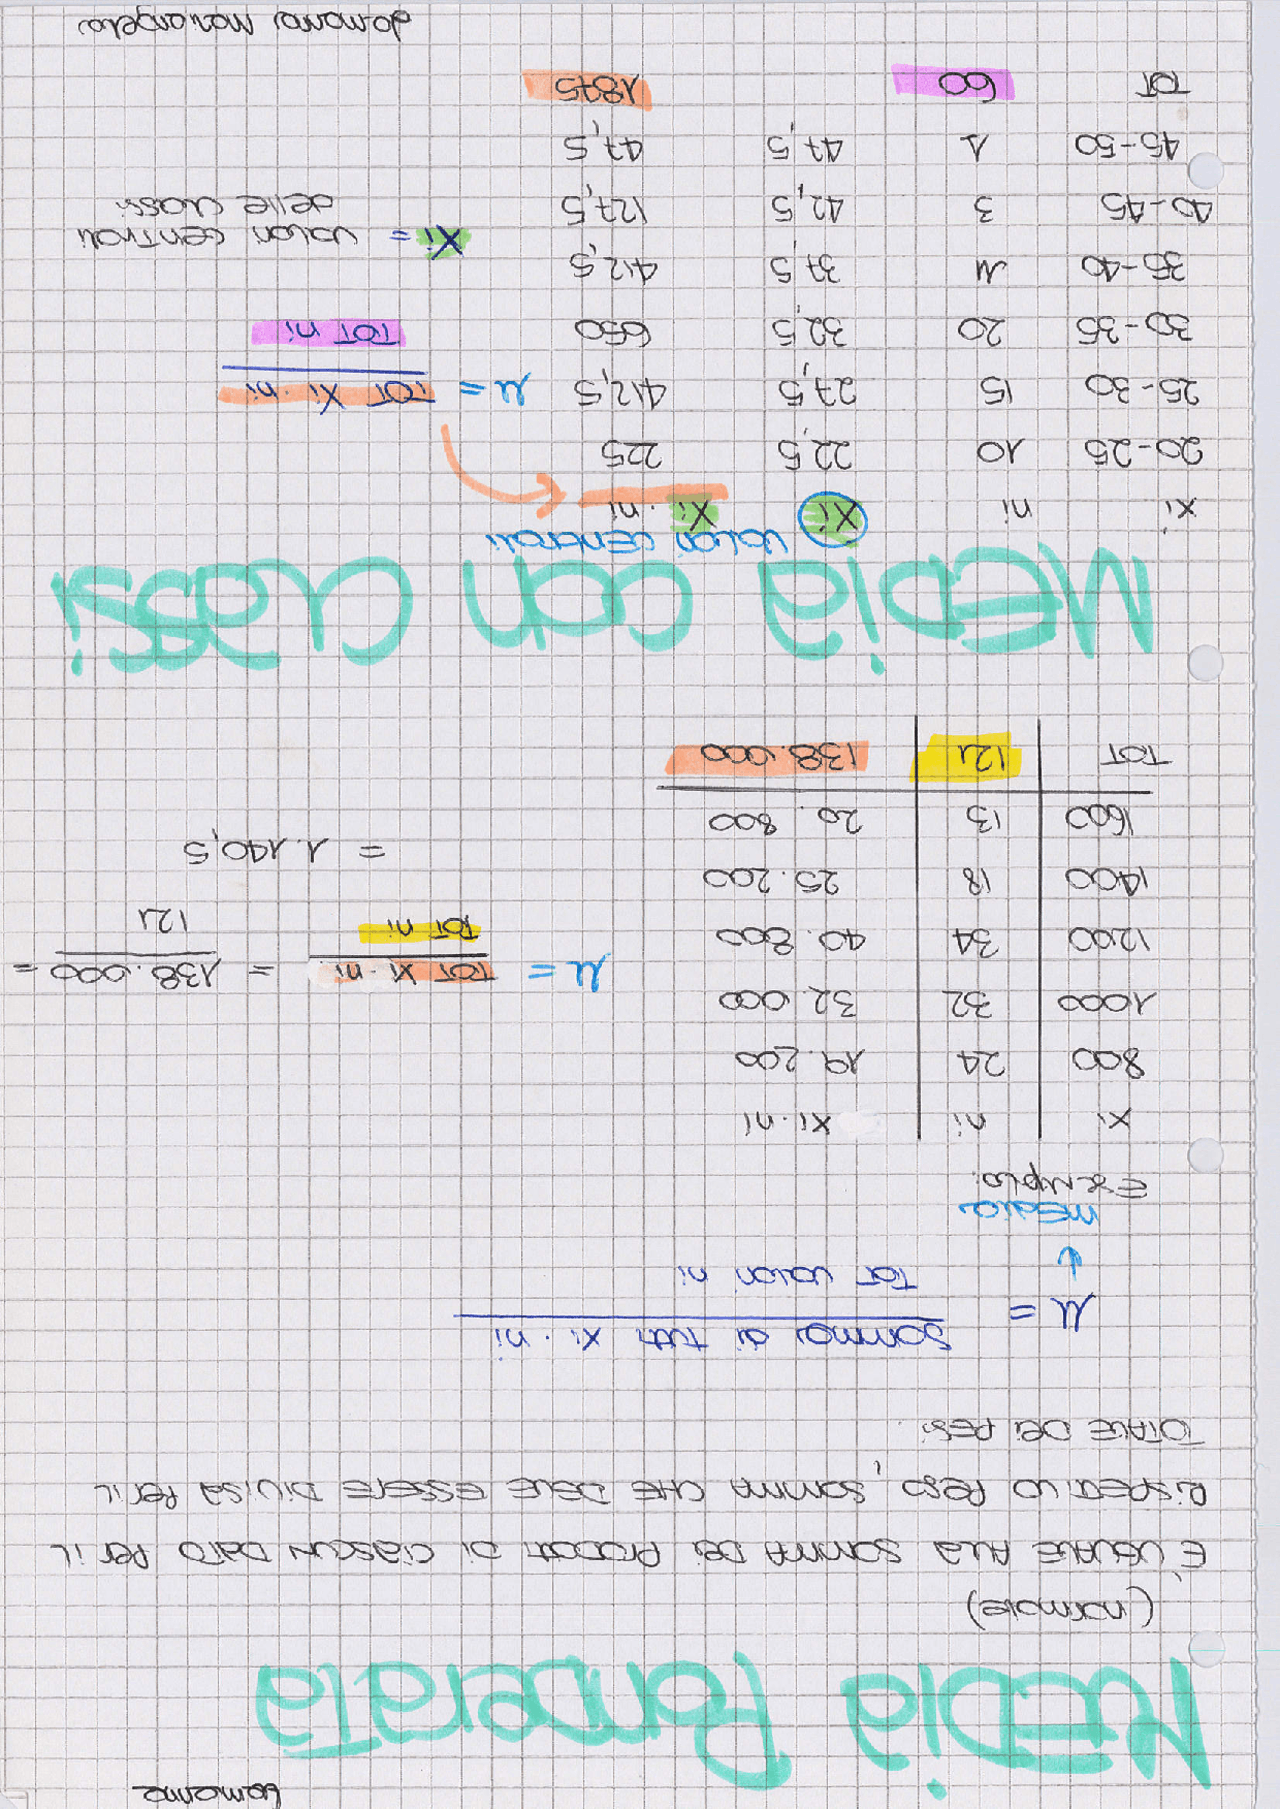 MEDIA PONDERATA
(normale)
È UGUALE ALLA SOMMA DEI PRODOTTI DI CIASCUN DATO PER IL
RISPETTIVO PESO, SOMMA CHE DEVE ESSERE DIVISA PER IL
TOTALE DEI PESI.
μ = somma di tutti xi · ni
TOT valori ni
↓
MEDIA
Esempio:
xi ni xi·ni
800 24 19.200
1000 32 32.000
1200 34 40.800
1400 18 25.200
1600 13 20.800
TOT 121 138.000
μ = TOT xi·ni = 138.000 =
TOT ni 121
= 1.140,5
MEDIA con classi
valori centrali
xi ni Xi Xi·ni
20-25 10 22,5 225
25-30 15 27,5 412,5
30-35 20 32,5 650
35-40 11 37,5 412,5
40-45 3 42,5 127,5
45-50 1 47,5 47,5
TOT 60 1875
μ = TOT Xi·ni
TOT ni
Xi = valori centrali
delle classi